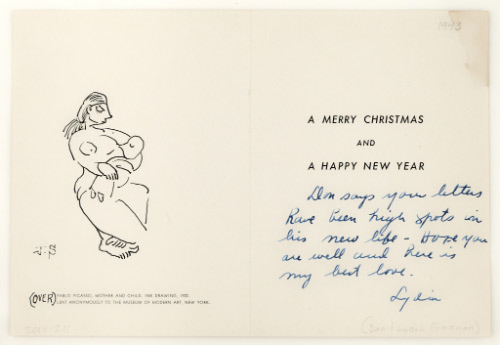 1943
A MERRY CHRISTMAS
AND
A HAPPY NEW YEAR
Don says your letters
have been high spots in
his new life - Hope you
are well and here is
my best love.
Lydia
(OVER) PABLO PICASSO: MOTHER AND CHILD. INK DRAWING,
LENT ANONYMOUSLY TO THE MUSEUM OF MODERN ART, NEW YORK.